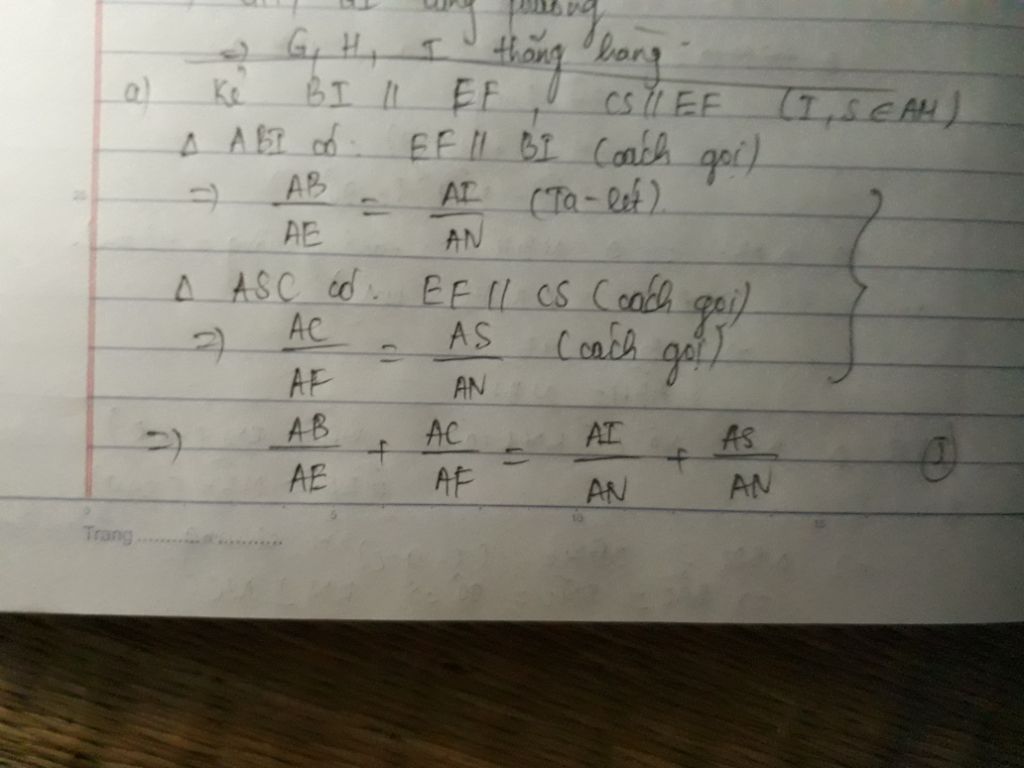 GI cùng phương
=> G, H, I thẳng hàng
a) Kẻ BI // EF, CS // EF (I, S ∈ AM)
Δ ABI có: EF // BI (cách gọi)
=> AB/AE = AI/AN (Ta-lét)
Δ ASC có: EF // CS (cách gọi)
=> AC/AF = AS/AN (cách gọi)
=> AB/AE + AC/AF = AI/AN + AS/AN ①
Trang
0 5 10 15